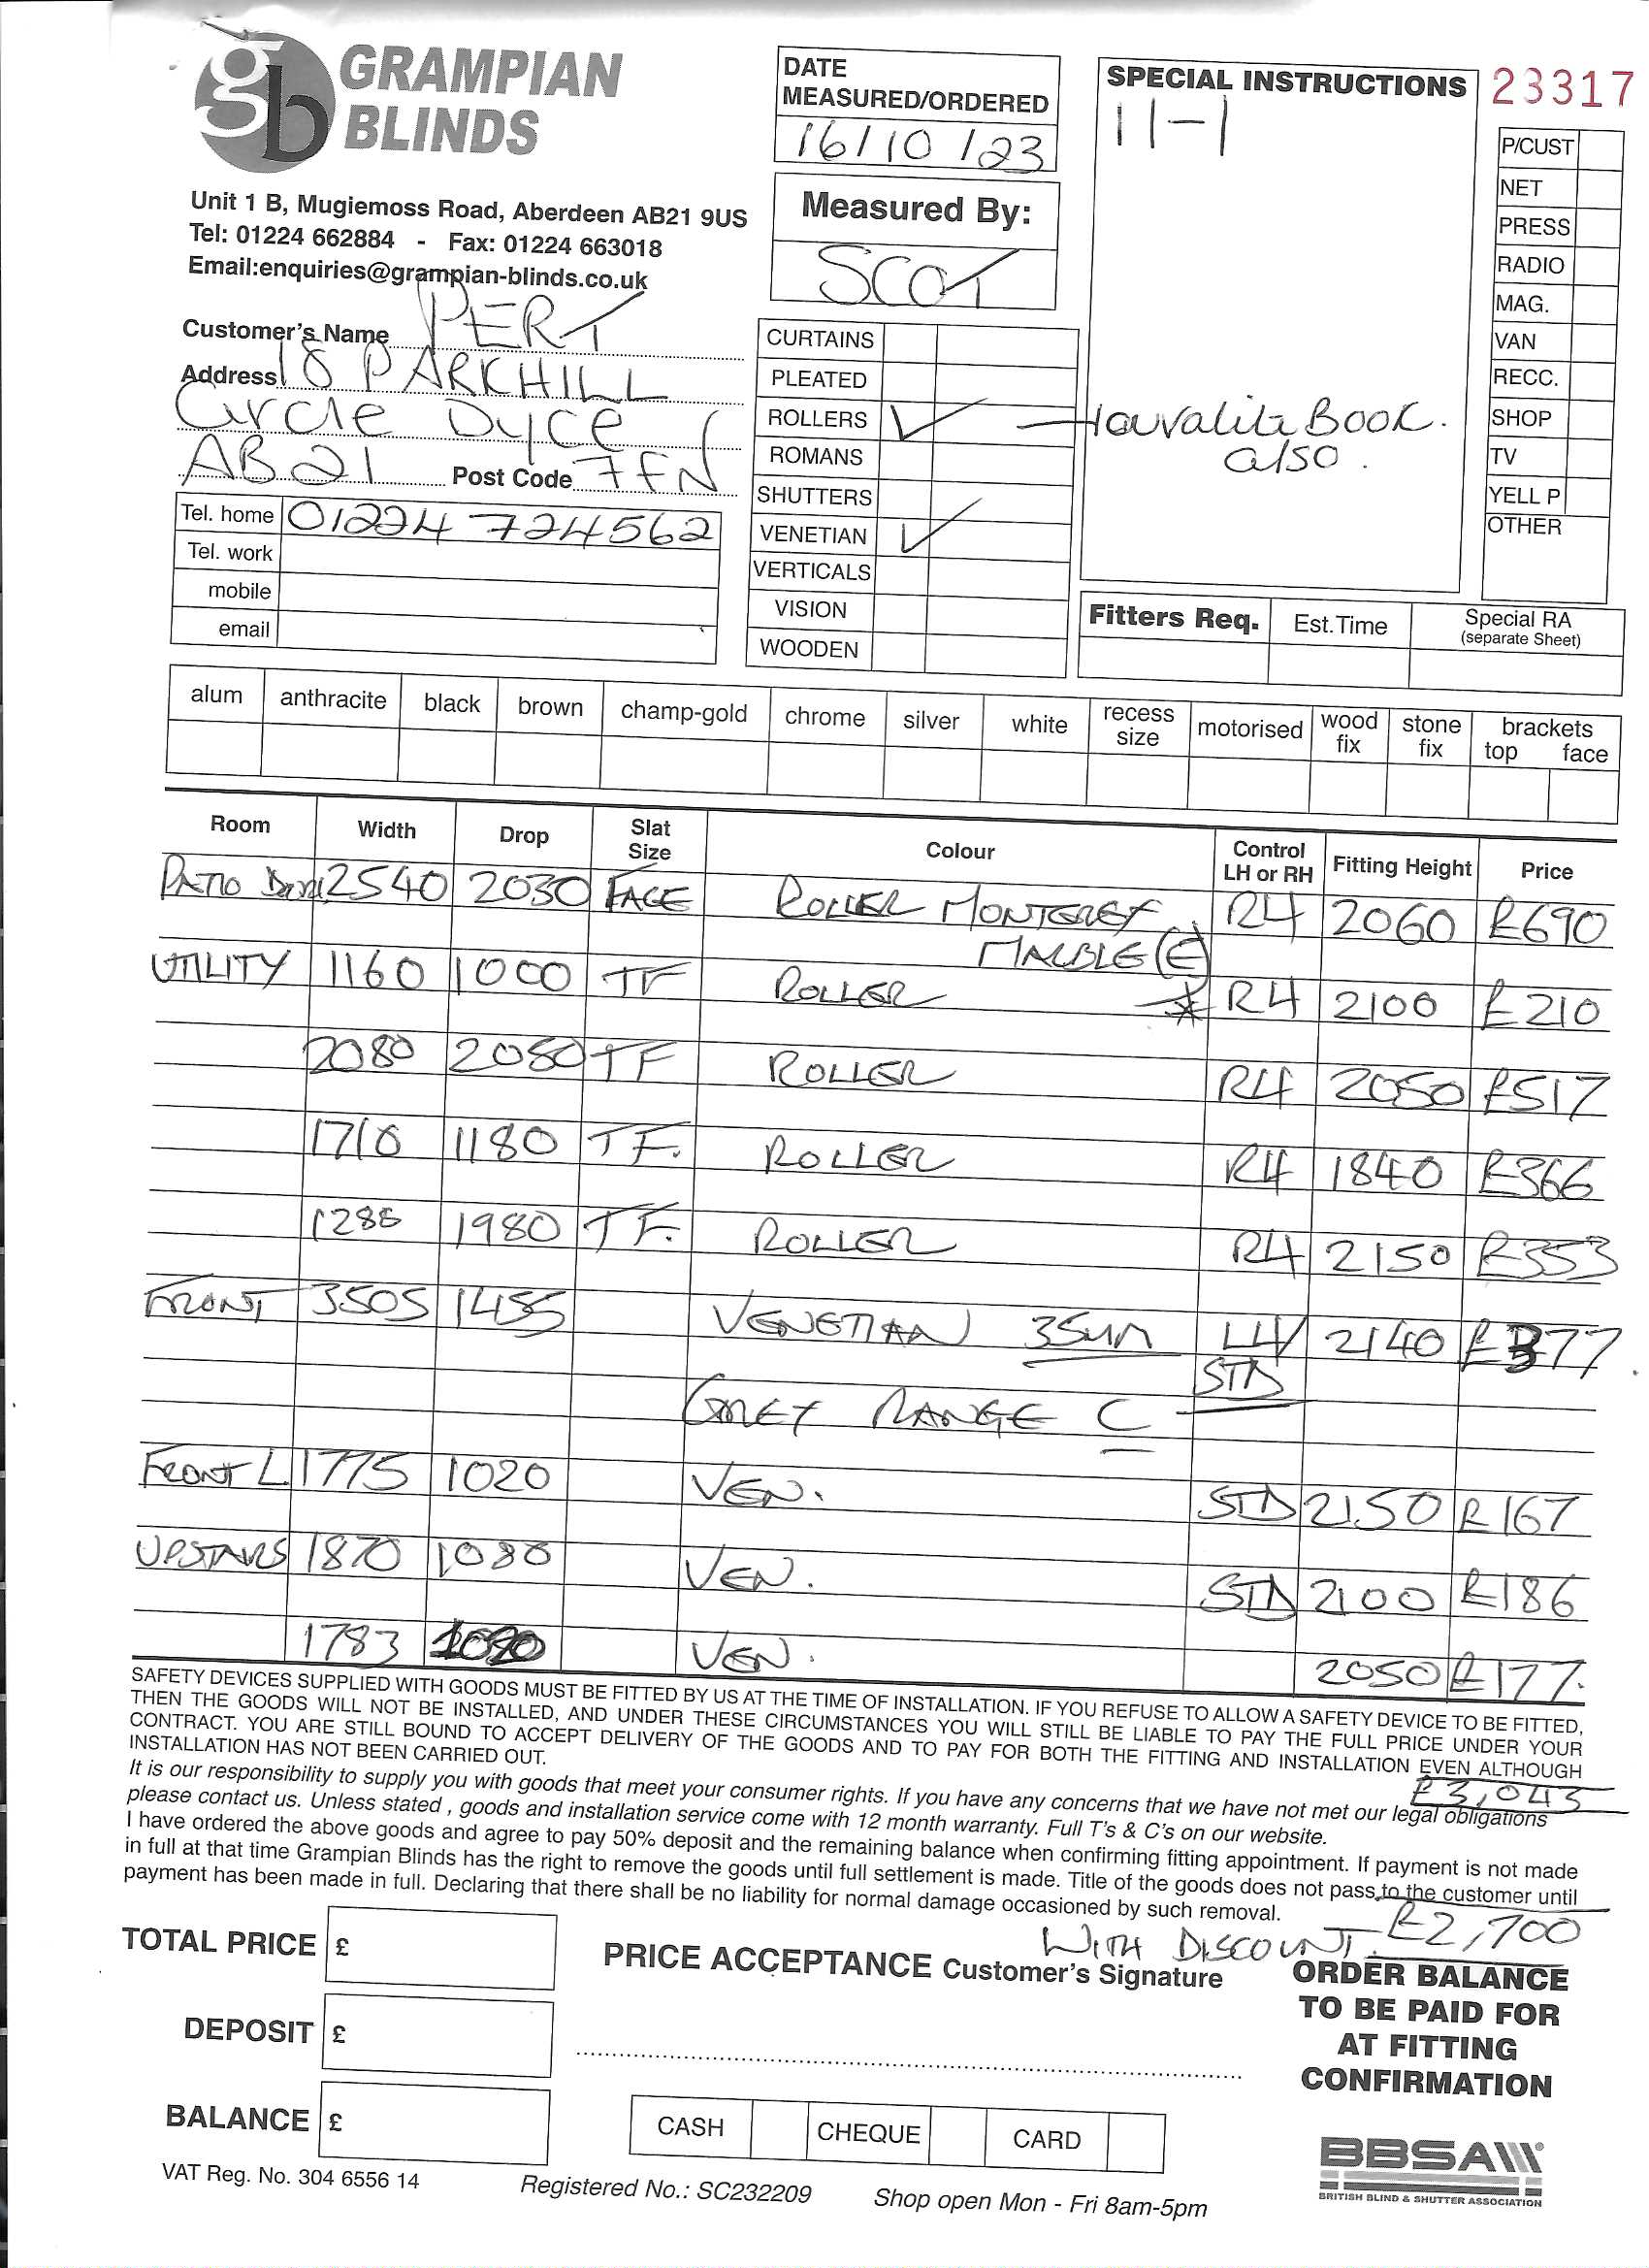 gb GRAMPIAN
BLINDS
Unit 1 B, Mugiemoss Road, Aberdeen AB21 9US
Tel: 01224 662884 - Fax: 01224 663018
Email:enquiries@grampian-blinds.co.uk
Customer's Name PERT
Address 18 PARKHILL
Circle Dyce
AB21 Post Code 7FN
Tel. home 01224 724562
Tel. work
mobile
email
DATE
MEASURED/ORDERED
16/10/23
Measured By:
SCOT
CURTAINS
PLEATED
ROLLERS ✓
ROMANS
SHUTTERS
VENETIAN ✓
VERTICALS
VISION
WOODEN
SPECIAL INSTRUCTIONS
11-1
Book.
also.
23317
P/CUST
NET
PRESS
RADIO
MAG.
VAN
RECC.
SHOP
TV
YELL P
OTHER
Fitters Req. Est.Time Special RA
(separate Sheet)
alum anthracite black brown champ-gold chrome silver white recess size motorised wood fix stone fix brackets top face
Room Width Drop Slat Size Colour Control LH or RH Fitting Height Price
PATIO 2540 2030 FACE ROLLER MONTEREY RH 2060 £690
MARBLE (E)
UTILITY 1160 1000 TF ROLLER * RH 2100 £210
2080 2080 TF ROLLER RH 2050 £517
1710 1180 TF. ROLLER RH 1840 £366
1286 1980 TF. ROLLER RH 2150 £353
FRONT 3505 1455 VENETIAN 35MM LH 2140 £377
STD
GREY RANGE C
FRONT L 1775 1020 VEN. STD 2150 £167
UPSTAIRS 1870 1080 VEN. STD 2100 £186
1783 VEN. 2050 £177.
SAFETY DEVICES SUPPLIED WITH GOODS MUST BE FITTED BY US AT THE TIME OF INSTALLATION. IF YOU REFUSE TO ALLOW A SAFETY DEVICE TO BE FITTED,
THEN THE GOODS WILL NOT BE INSTALLED, AND UNDER THESE CIRCUMSTANCES YOU WILL STILL BE LIABLE TO PAY THE FULL PRICE UNDER YOUR
CONTRACT. YOU ARE STILL BOUND TO ACCEPT DELIVERY OF THE GOODS AND TO PAY FOR BOTH THE FITTING AND INSTALLATION EVEN ALTHOUGH
INSTALLATION HAS NOT BEEN CARRIED OUT.
£3,043
It is our responsibility to supply you with goods that meet your consumer rights. If you have any concerns that we have not met our legal obligations
please contact us. Unless stated , goods and installation service come with 12 month warranty. Full T's & C's on our website.
I have ordered the above goods and agree to pay 50% deposit and the remaining balance when confirming fitting appointment. If payment is not made
in full at that time Grampian Blinds has the right to remove the goods until full settlement is made. Title of the goods does not pass to the customer until
payment has been made in full. Declaring that there shall be no liability for normal damage occasioned by such removal.
WITH DISCOUNT £2,700
TOTAL PRICE £
DEPOSIT £
BALANCE £
PRICE ACCEPTANCE Customer's Signature
CASH CHEQUE CARD
ORDER BALANCE
TO BE PAID FOR
AT FITTING
CONFIRMATION
BBSA
BRITISH BLIND & SHUTTER ASSOCIATION
VAT Reg. No. 304 6556 14
Registered No.: SC232209
Shop open Mon - Fri 8am-5pm